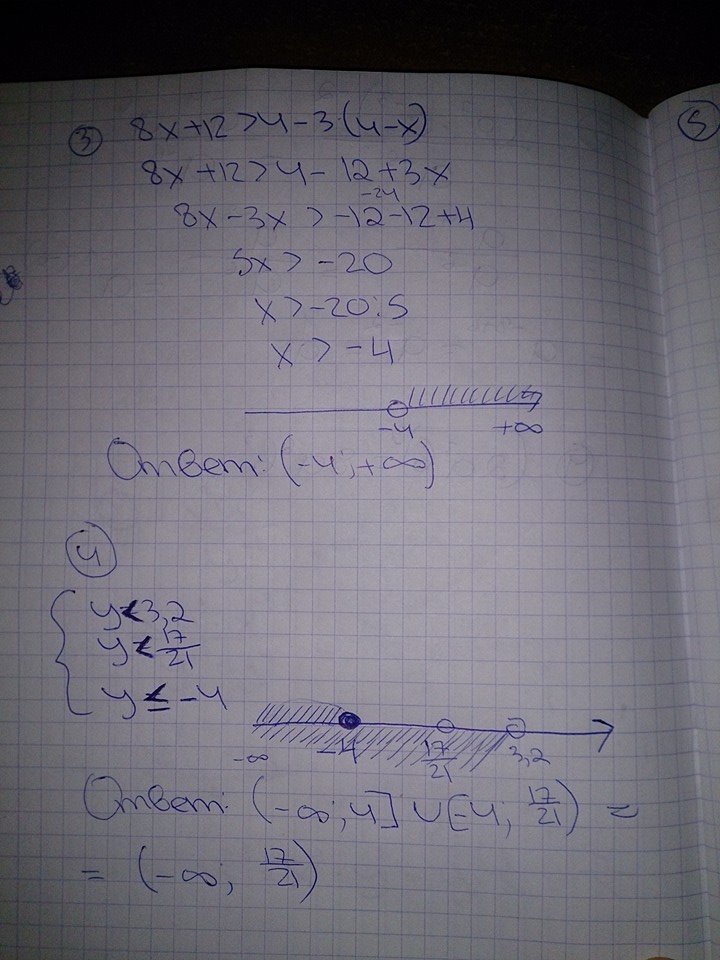 3 8x+12>4-3(4-x)
5
8x+12>4-12+3x
-24
8x-3x>-12-12+4
5x>-20
x>-20:5
x>-4
-4 +∞
Ответ: (-4;+∞)
4
y<3,2
y<17/21
y≤-4
-∞ -4 17/21 3,2
Ответ: (-∞;4]∪[-4; 17/21) =
= (-∞; 17/21)